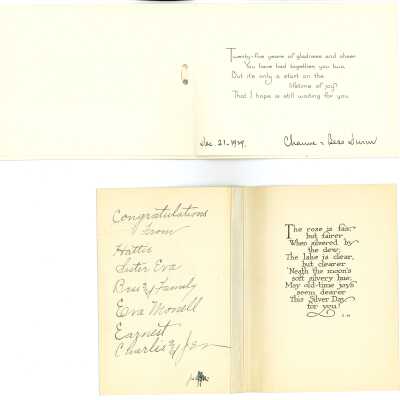 Twenty-five years of gladness and cheer
You have had together, you two,
But it's only a start on the
lifetime of joy
That I hope is still waiting for you.
Dec. 21-1929.
Congratulations
from
Hattie
Sister Eva
Bro & Family
Eva Monell
Earnest
Charlie &
The rose is fair,
but fairer
When silvered by
the dew;
The lake is clear,
but clearer
'Neath the moon's
soft silvery hue;
May old-time joys
seem dearer
This Silver Day
for you!